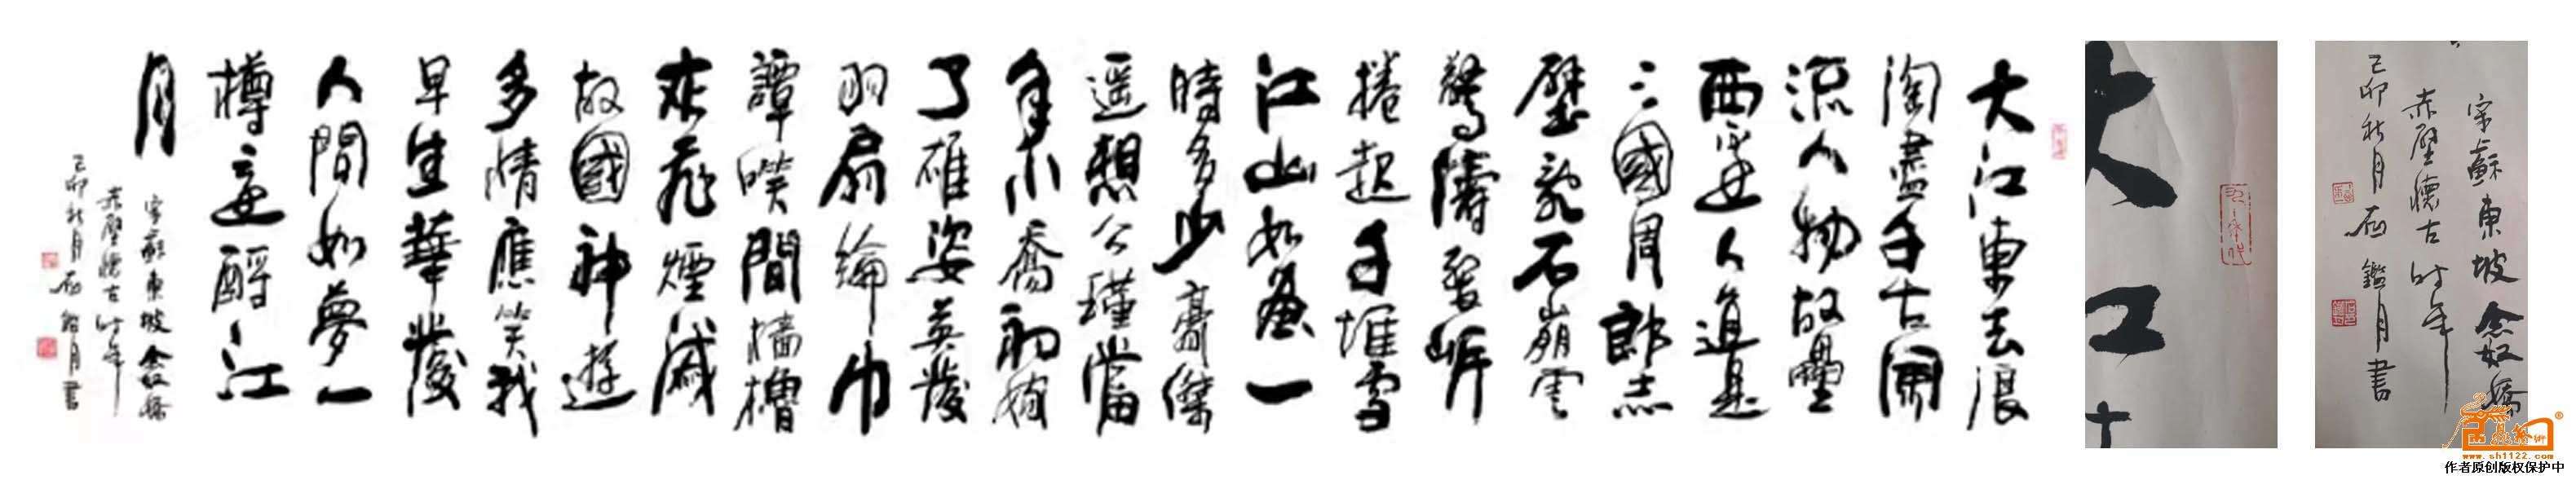 大江東去浪
淘盡千古風
流人物故壘
西邊人道是
三國周郎赤
壁亂石崩雲
驚濤裂岸
捲起千堆雪
江山如畫一
時多少豪傑
遥想公瑾當
年小喬初嫁
了雄姿英發
羽扇綸巾
譚笑間檣櫓
灰飛煙滅
故國神遊
多情應笑我
早生華髮
人間如夢一
樽還酹江
月
宋蘇東坡念奴嬌
赤壁懷古時年
己卯秋月石鑑月書
大江
宋蘇東坡念奴嬌
赤壁懷古時年
己卯秋月石鑑月書
www.sh1122.com
作者原创版权保护中